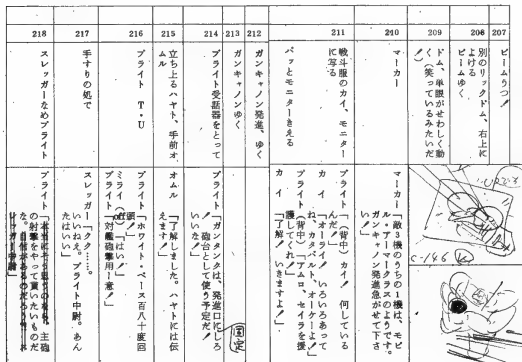 207
ビームうつ!
208
別のリックドム、右上に
よける
ビームゆく
209
ドム、単眼がせわしく動
く(笑っているみたいだ
!)
210
マーカー
マーカー「敵3機のうちの1機は、モビ
ル・アーマークラスのようです。
ガンキャノン発進急がせて下さ
い!」
211
戦斗服のカイ、モニター
に写る
パッとモニターきえる
ブライト(背中)カイ! 何している
んだ!」
カイ「オーライ! いろいろあって
ね、カタパルト、オーケーよ!」
ブライト(背中)「アムロ、セイラを援
護してくれ!」
カイ「了解、いきますよ!」
212
ガンキャノン発進、ゆく
213
ガンキャノンゆく
214
ブライト受話器をとって
ブライト「ガンタンクは、発進口にしろ
! 砲台として使う予定だ!
いいな!」
固定
215
立ち上るハヤト、手前オ
ムル
オムル「了解しました。ハヤトには伝
えます!」
216
ブライト T・U
ブライト「ホワイト・ベース百八十度回
頭!」
ミライ(off)「はい!」
ブライト「対艦砲撃用ー意!」
217
手すりの処で
スレッガー「クク……。
いいねえ。ブライト中尉。あん
たはいい」
218
スレッガーなめブライト
ブライト
主砲
の射撃をやって貰いたいものだ
な。
C-146